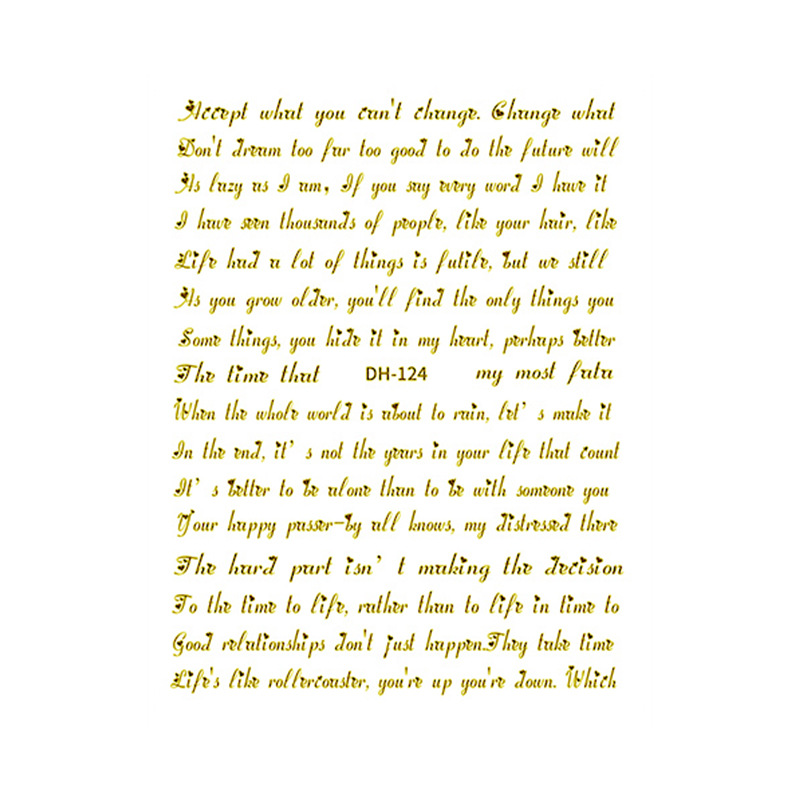 Accept what you can't change. Change what
Don't dream too far too good to do the future will
As lazy as I am, If you say every word I have it
I have seen thousands of people, like your hair, like
Life had a lot of things is futile, but we still
As you grow older, you'll find the only things you
Some things, you hide it in my heart, perhaps better
The time that DH-124 my most fata
When the whole world is about to rain, let's make it
In the end, it's not the years in your life that count
It's better to be alone than to be with someone you
Your happy passer-by all knows, my distressed there
The hard part isn't making the decision
To the time to life, rather than to life in time to
Good relationships don't just happen.They take time
Life's like rollercoaster, you're up you're down. Which